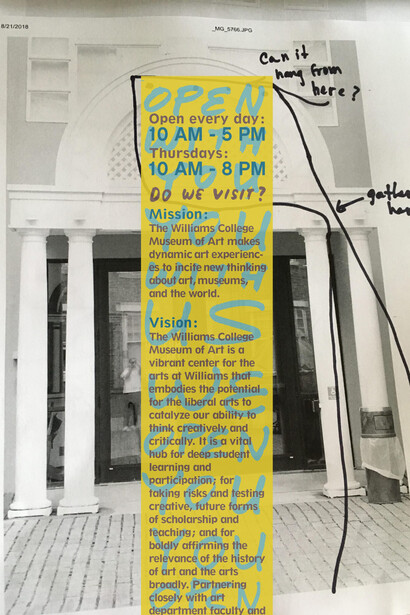 8/21/2018
_MG_5766.JPG
Can it
hang from
here?
OPEN
WITH
YOU
Open every day:
10 AM - 5 PM
Thursdays:
10 AM - 8 PM
DO WE VISIT?
Mission:
The Williams College
Museum of Art makes
dynamic art experienc-
es to incite new thinking
about art, museums,
and the world.
Vision:
The Williams College
Museum of Art is a
vibrant center for the
arts at Williams that
embodies the potential
for the liberal arts to
catalyze our ability to
think creatively and
critically. It is a vital
hub for deep student
learning and
participation; for
taking risks and testing
creative, future forms
of scholarship and
teaching; and for
boldly affirming the
relevance of the history
of art and the arts
broadly. Partnering
closely with art
department faculty and